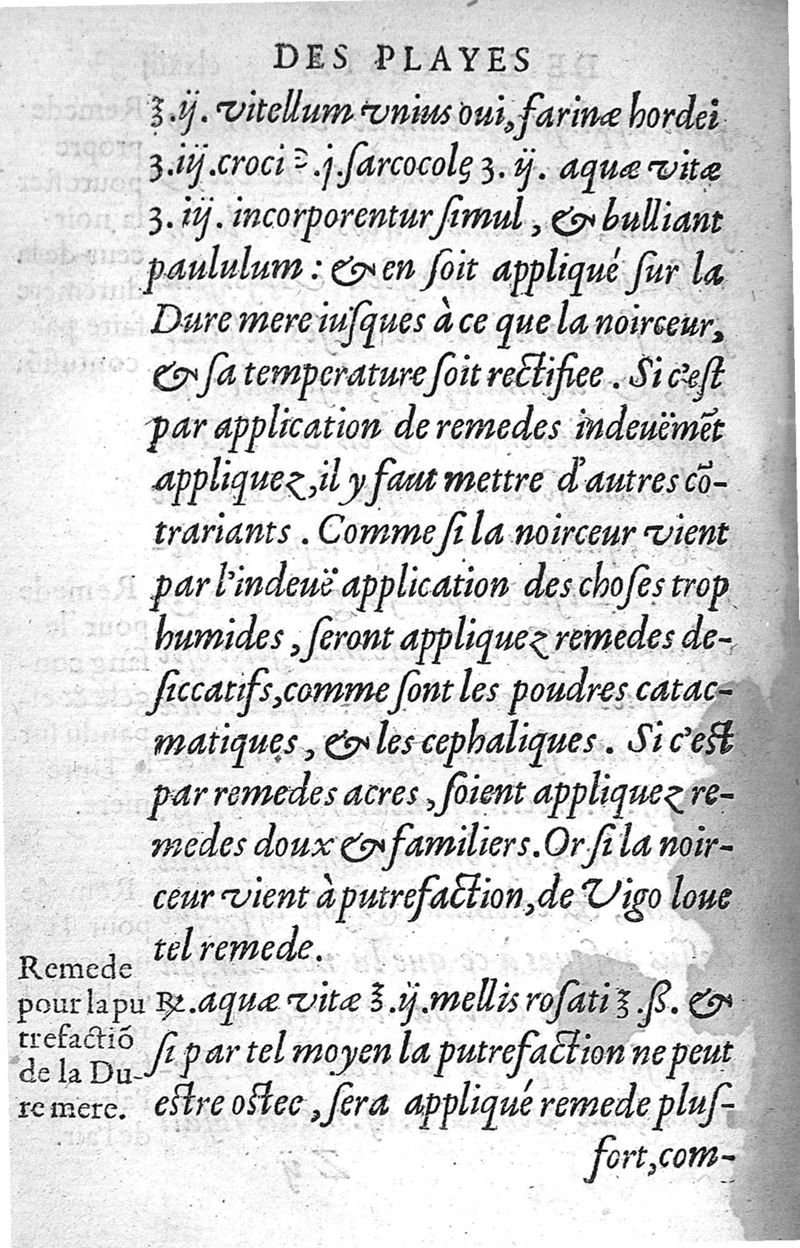 DES PLAYES
℥.ij. vitellum vnius oui, farinæ hordei
ʒ.iij. croci ℈.j. ſarcocolę ʒ. ij. aquæ vitæ
ʒ. iij. incorporentur ſimul, & bulliant
paululum : & en ſoit appliqué ſur la
Dure mere iuſques à ce que la noirceur,
& ſa temperature ſoit rectifiee. Si c'eſt
par application de remedes indeuëmēt
appliquez, il y faut mettre d'autres cō-
trariants. Comme ſi la noirceur vient
par l'indeuë application des choſes trop
humides, ſeront appliquez remedes de-
ſiccatifs, comme ſont les poudres catac-
matiques, & les cephaliques. Si c'eſt
par remedes acres, ſoient appliquez re-
medes doux & familiers. Or ſi la noir-
ceur vient à putrefaction, de Vigo loue
tel remede.
Remede
pour la pu
trefactiō
de la Du-
re mere.
℞. aquæ vitæ ℥.ij. mellis roſati ℥.ß. &
ſi par tel moyen la putrefaction ne peut
eſtre oſtee, ſera appliqué remede pluſ-
fort, com-